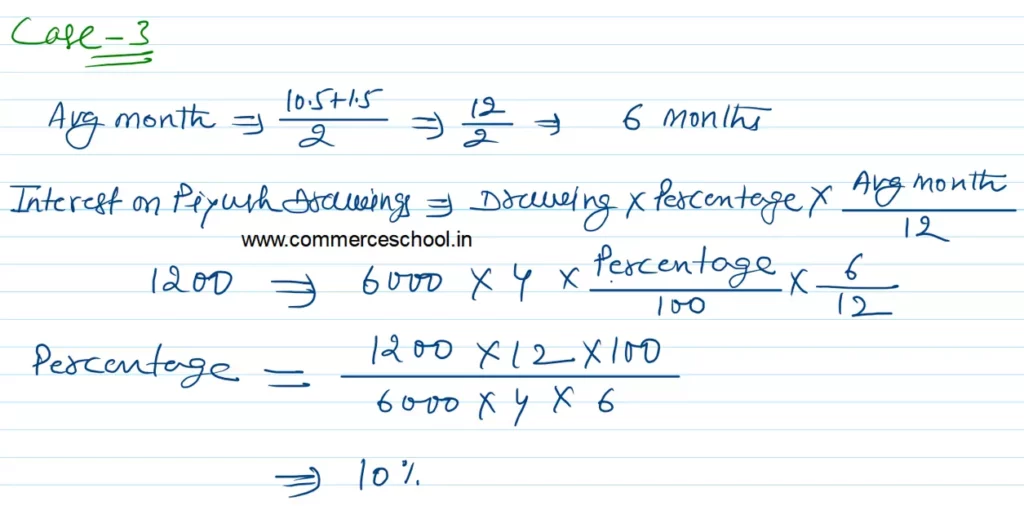 Case - 3
Avg month ⇒ 10.5+1.5/2 ⇒ 12/2 ⇒ 6 Months
Interest on Piyush Drawings ⇒ Drawing × Percentage × Avg month/12
www.commerceschool.in
1200 ⇒ 6000 × 4 × Percentage/100 × 6/12
Percentage = 1200 × 12 × 100/6000 × 4 × 6
⇒ 10%